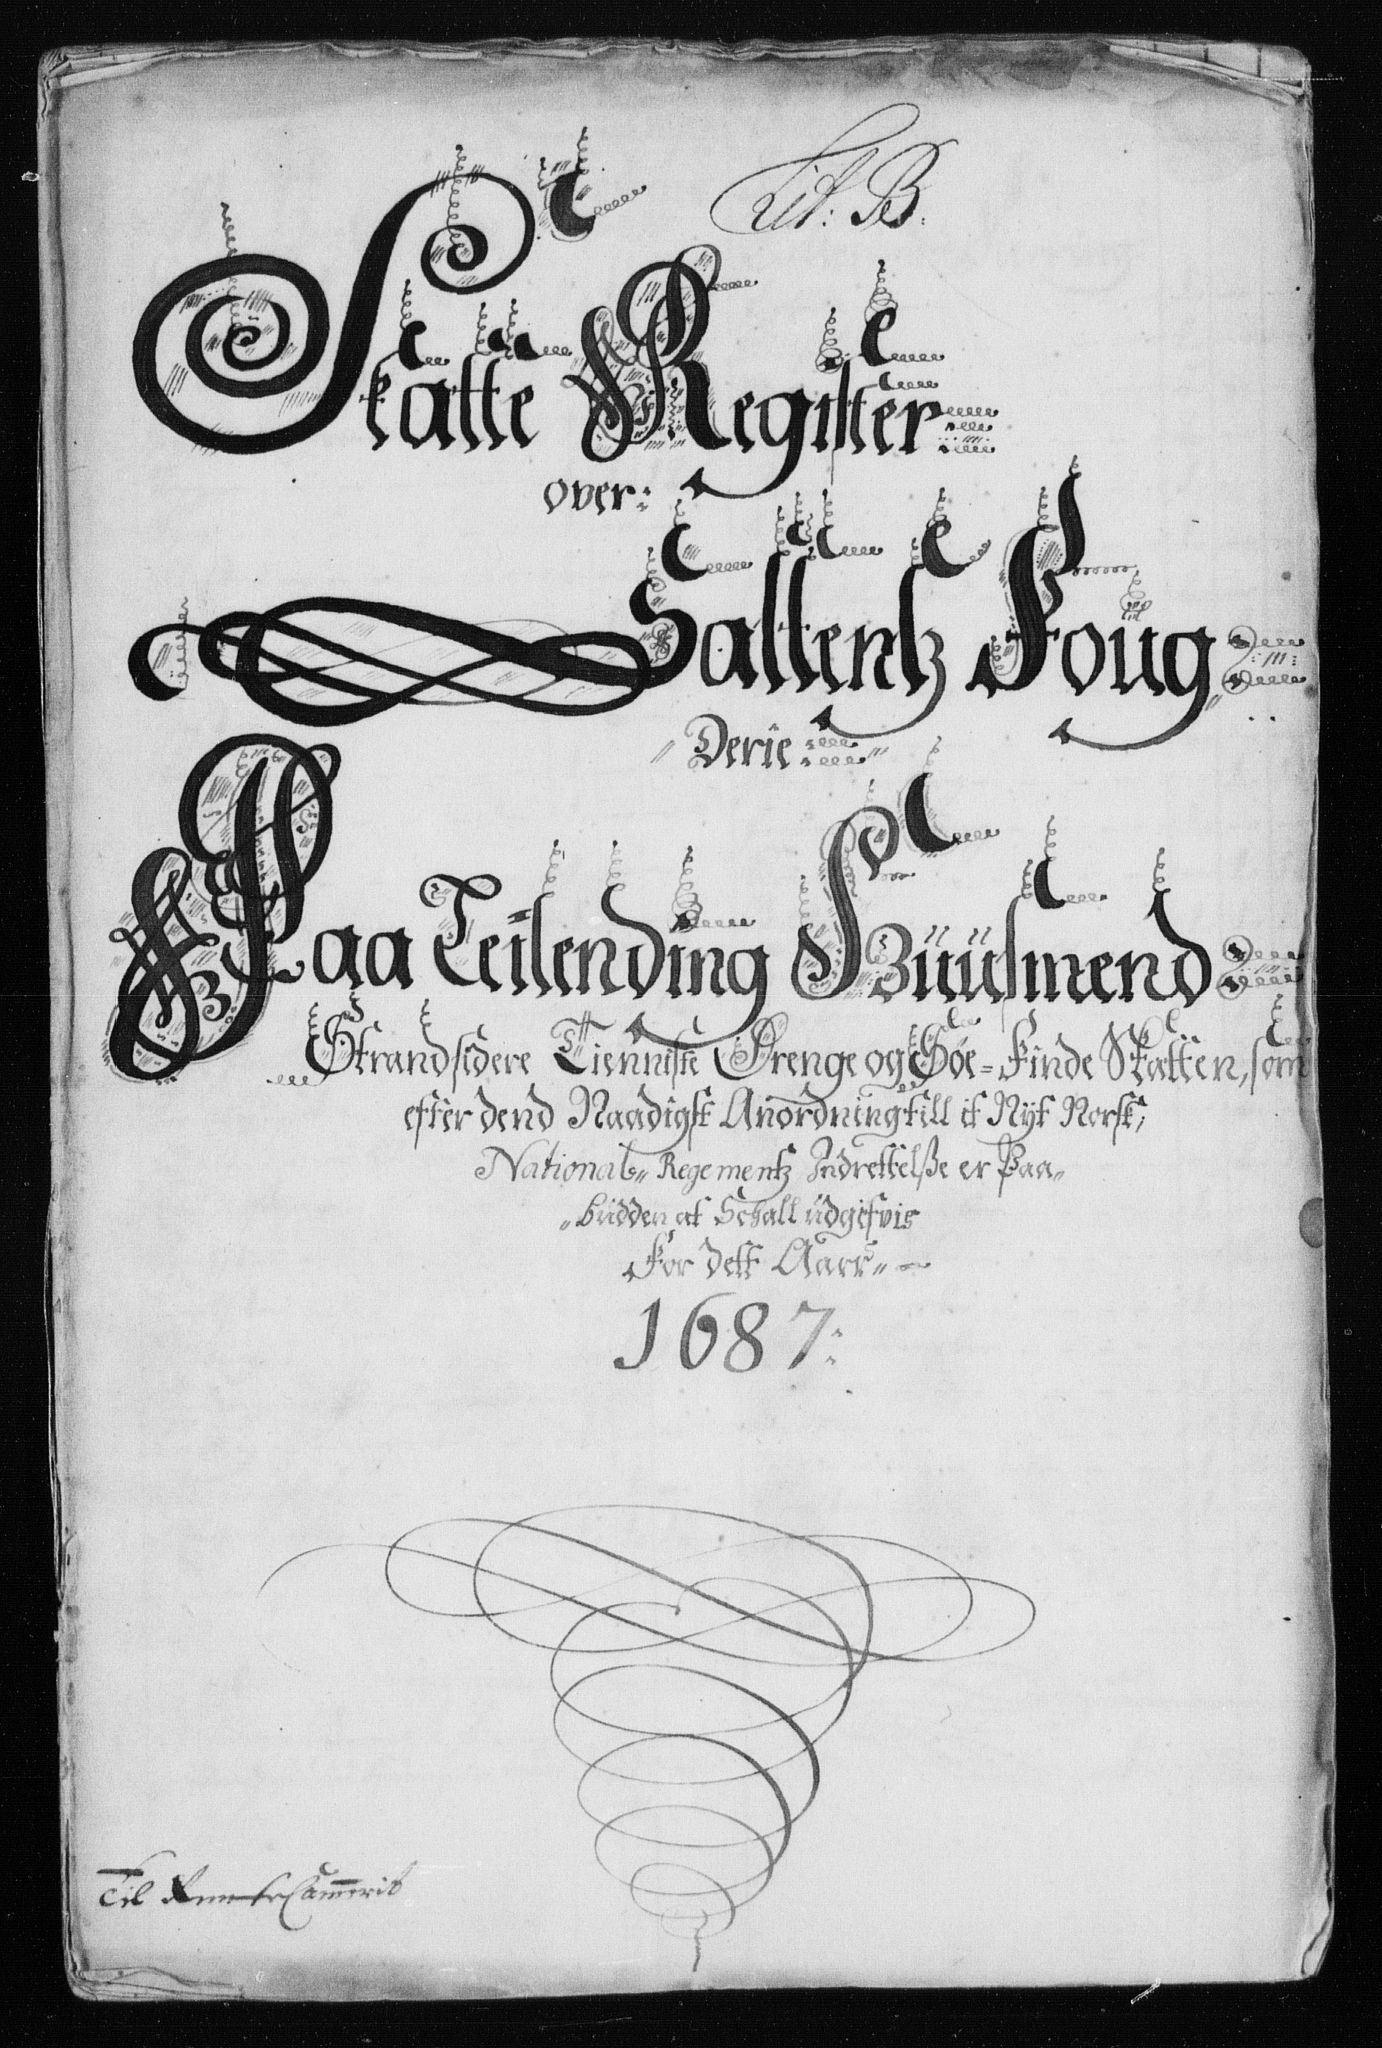 Lit: B:
Skatte Register
over:
Saltentz Foug
Derie
Paa Leilending Huusmend
Strandsidere Tienniste Drenge og Søe-Finde Skatten, som
efter dend Naadigst Anordning till it Nyt Norsk,
National Regementz Indrettelße er Paa-
budden at Schall udgifvis
For dett Aarr
1687:
Til RenteCammerit